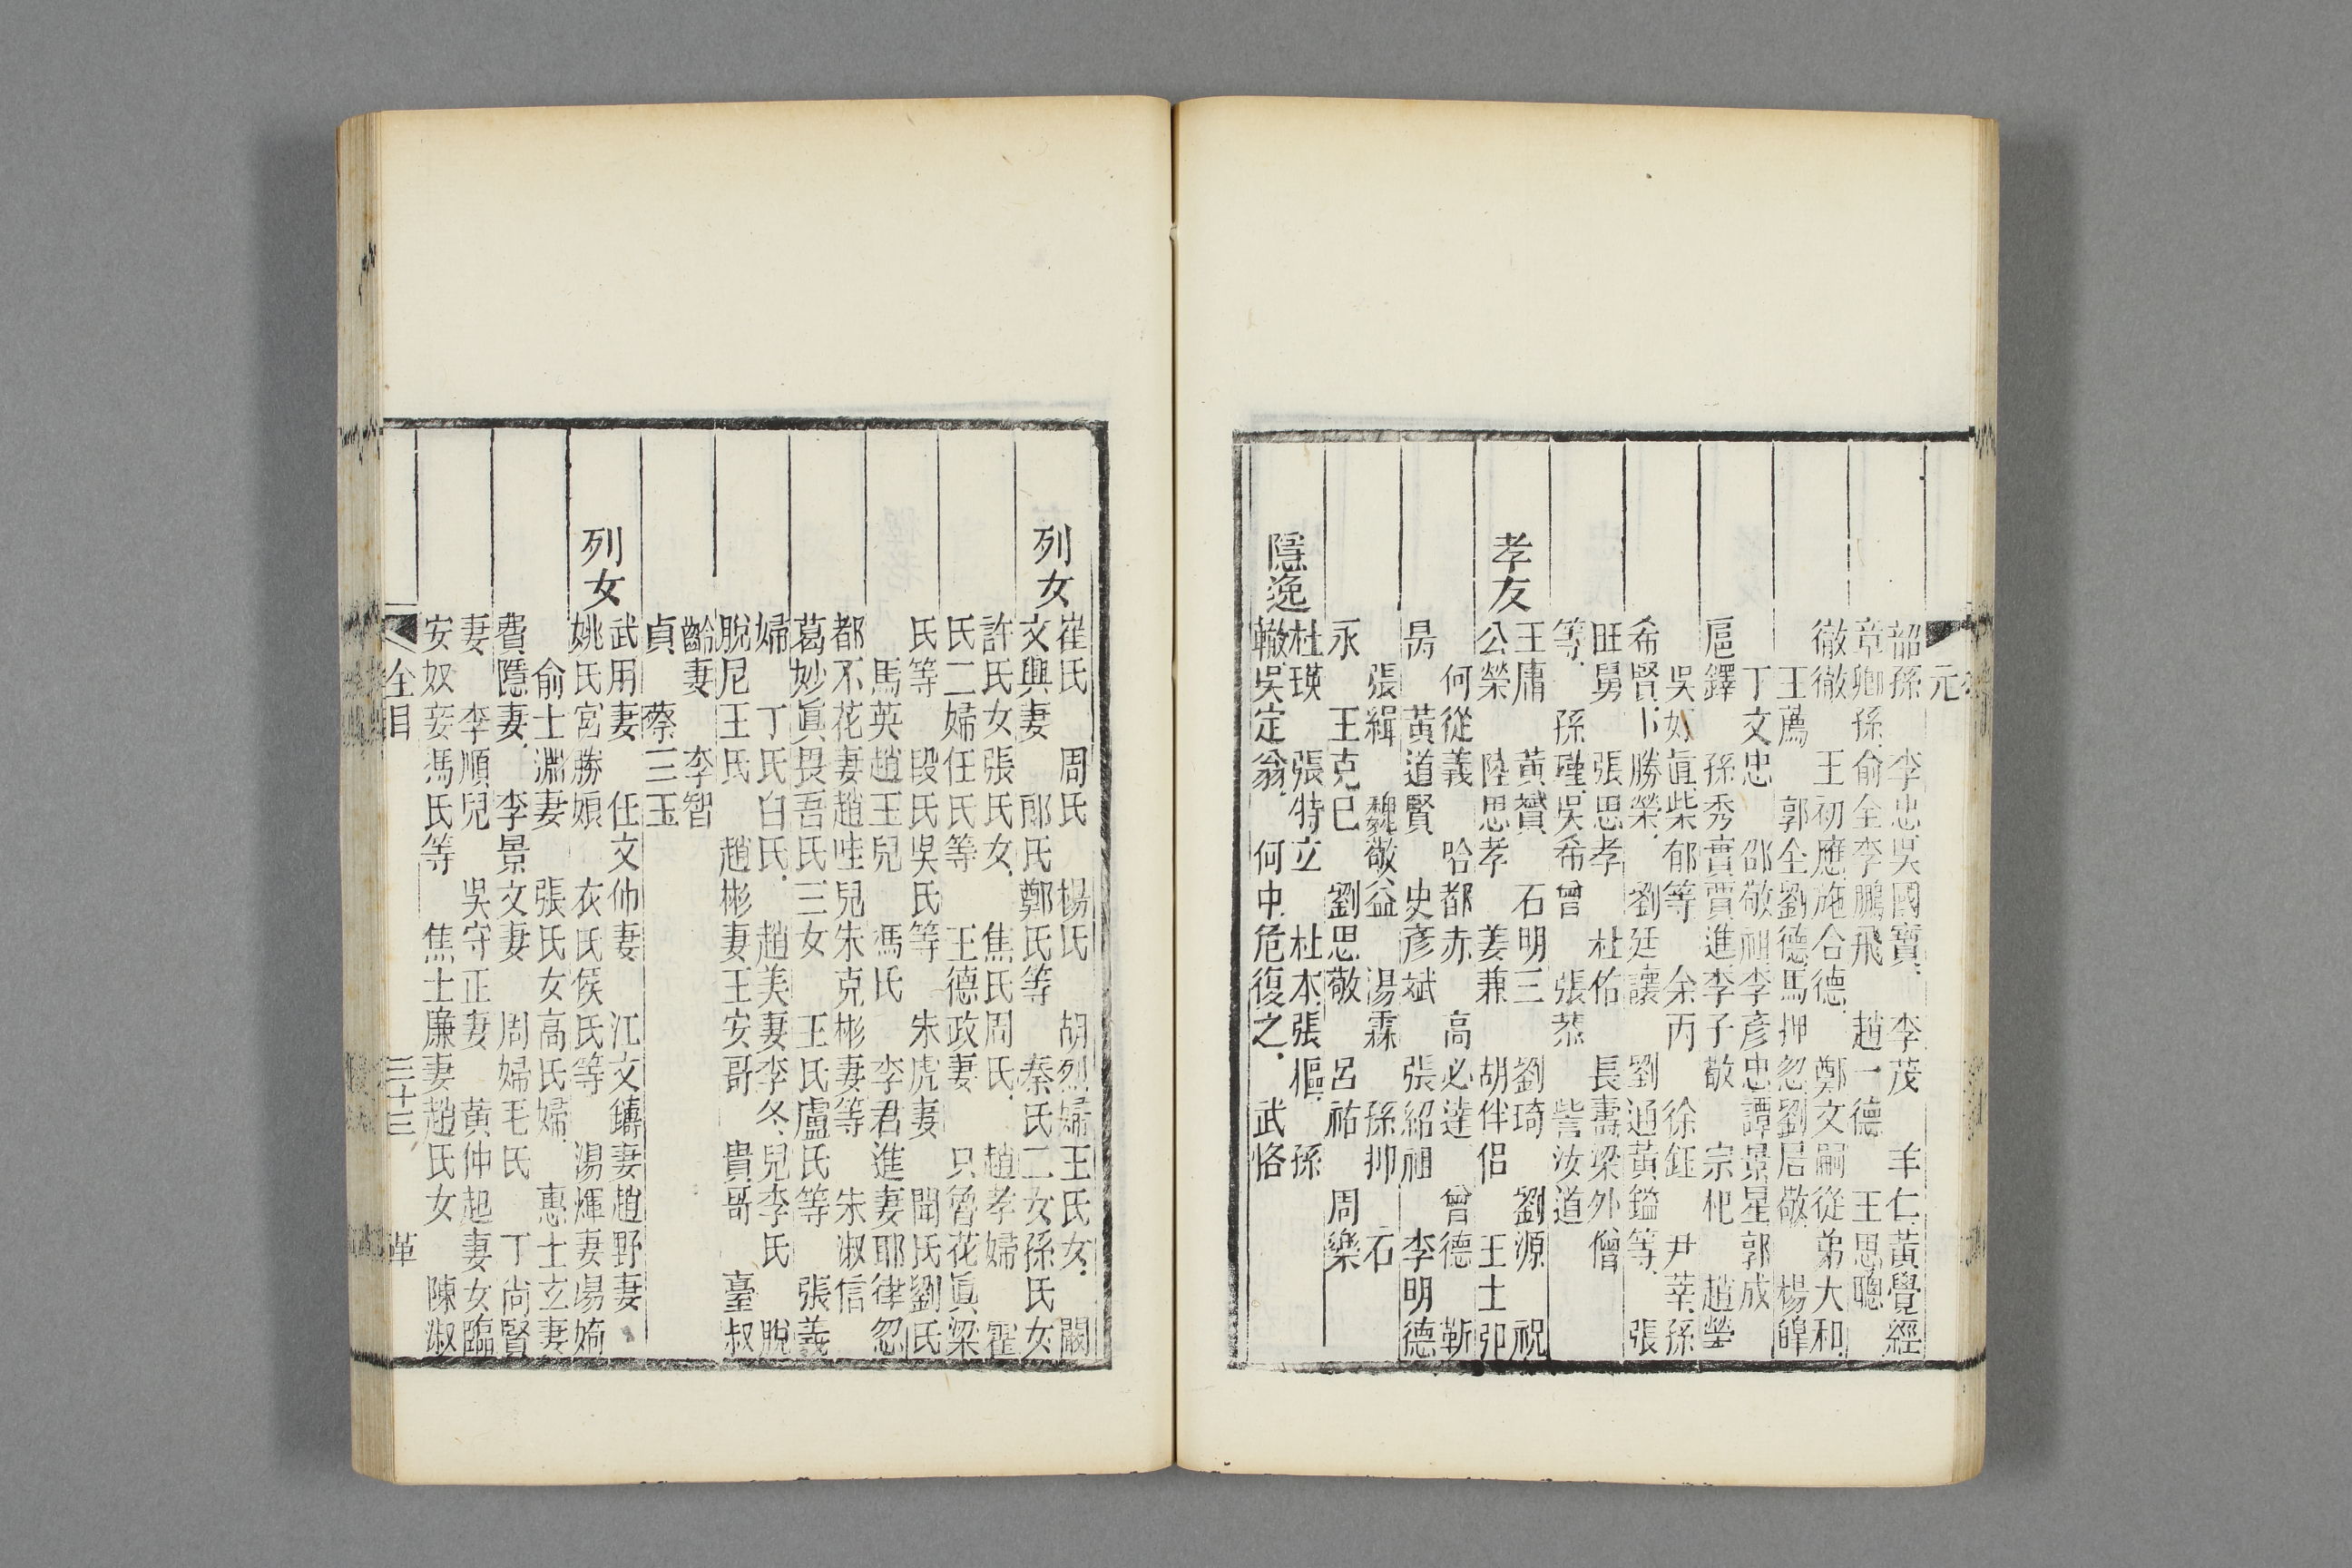 元
韶孫 李忠吳國寶 李茂 羊仁黃覺經
章卿孫俞全李鵬飛 趙一德 王思聰
徹徹 王初應施合德 鄭文嗣從弟大和
王薦 郭全劉德馬押忽劉居敬 楊皥
丁文忠 邵敬祖李彥忠譚景星郭成
扈鐸 孫秀實賈進李子敬 宗杞 趙榮
吳好直柴郁等 余丙 徐鈺 尹莘孫
希賢卜勝榮 劉廷讓 劉通黃鎰等 張
旺舅 張思孝 杜佑 長壽梁外僧
等 孫瑾吳希曾 張恭 訾汝道
孝友
王庸 黃贇 石明三 劉琦 劉源 祝
公榮 陸思孝 姜兼 胡伴侶 王士弘
何從義 哈都赤 高必達 曾德 靳
昺 黃道賢 史彥斌 張紹祖 李明德
張緝 魏敬益 湯霖 孫抑 石
永 王克巳 劉思敬 呂祐 周樂
隱逸
杜瑛 張特立 杜本張樞 孫
轍吳定翁 何中危復之 武恪
列女
崔氏 周氏 楊氏 胡烈婦王氏女 闞
文興妻 郎氏鄭氏等 秦氏二女孫氏女
許氏女張氏女 焦氏周氏 趙孝婦 霍
氏二婦任氏等 王德政妻 只魯花真梁
氏等 段氏吳氏等 朱虎妻 聞氏劉氏
馬英趙玉兒 馮氏 李君進妻耶律忽
都不花妻趙哇兒朱克彬妻等 朱淑信
葛妙真畏吾氏三女 王氏盧氏等 張義
婦 丁氏白氏 趙美妻李冬兒李氏 脫
脫尼王氏 趙彬妻王安哥 貴哥 臺叔
齡妻 李智
貞 蔡三玉
列女
武用妻 任文仲妻 江文鑄妻趙野妻
姚氏宮勝娘 衣氏侯氏等 湯煇妻湯婍
俞士淵妻 張氏女高氏婦 惠士玄妻
費隱妻 李景文妻 周婦毛氏 丁尚賢
妻 李順兒 吳守正妻 黃仲起妻女臨
安奴妾馮氏等 焦士廉妻趙氏女 陳淑
全目 三十三